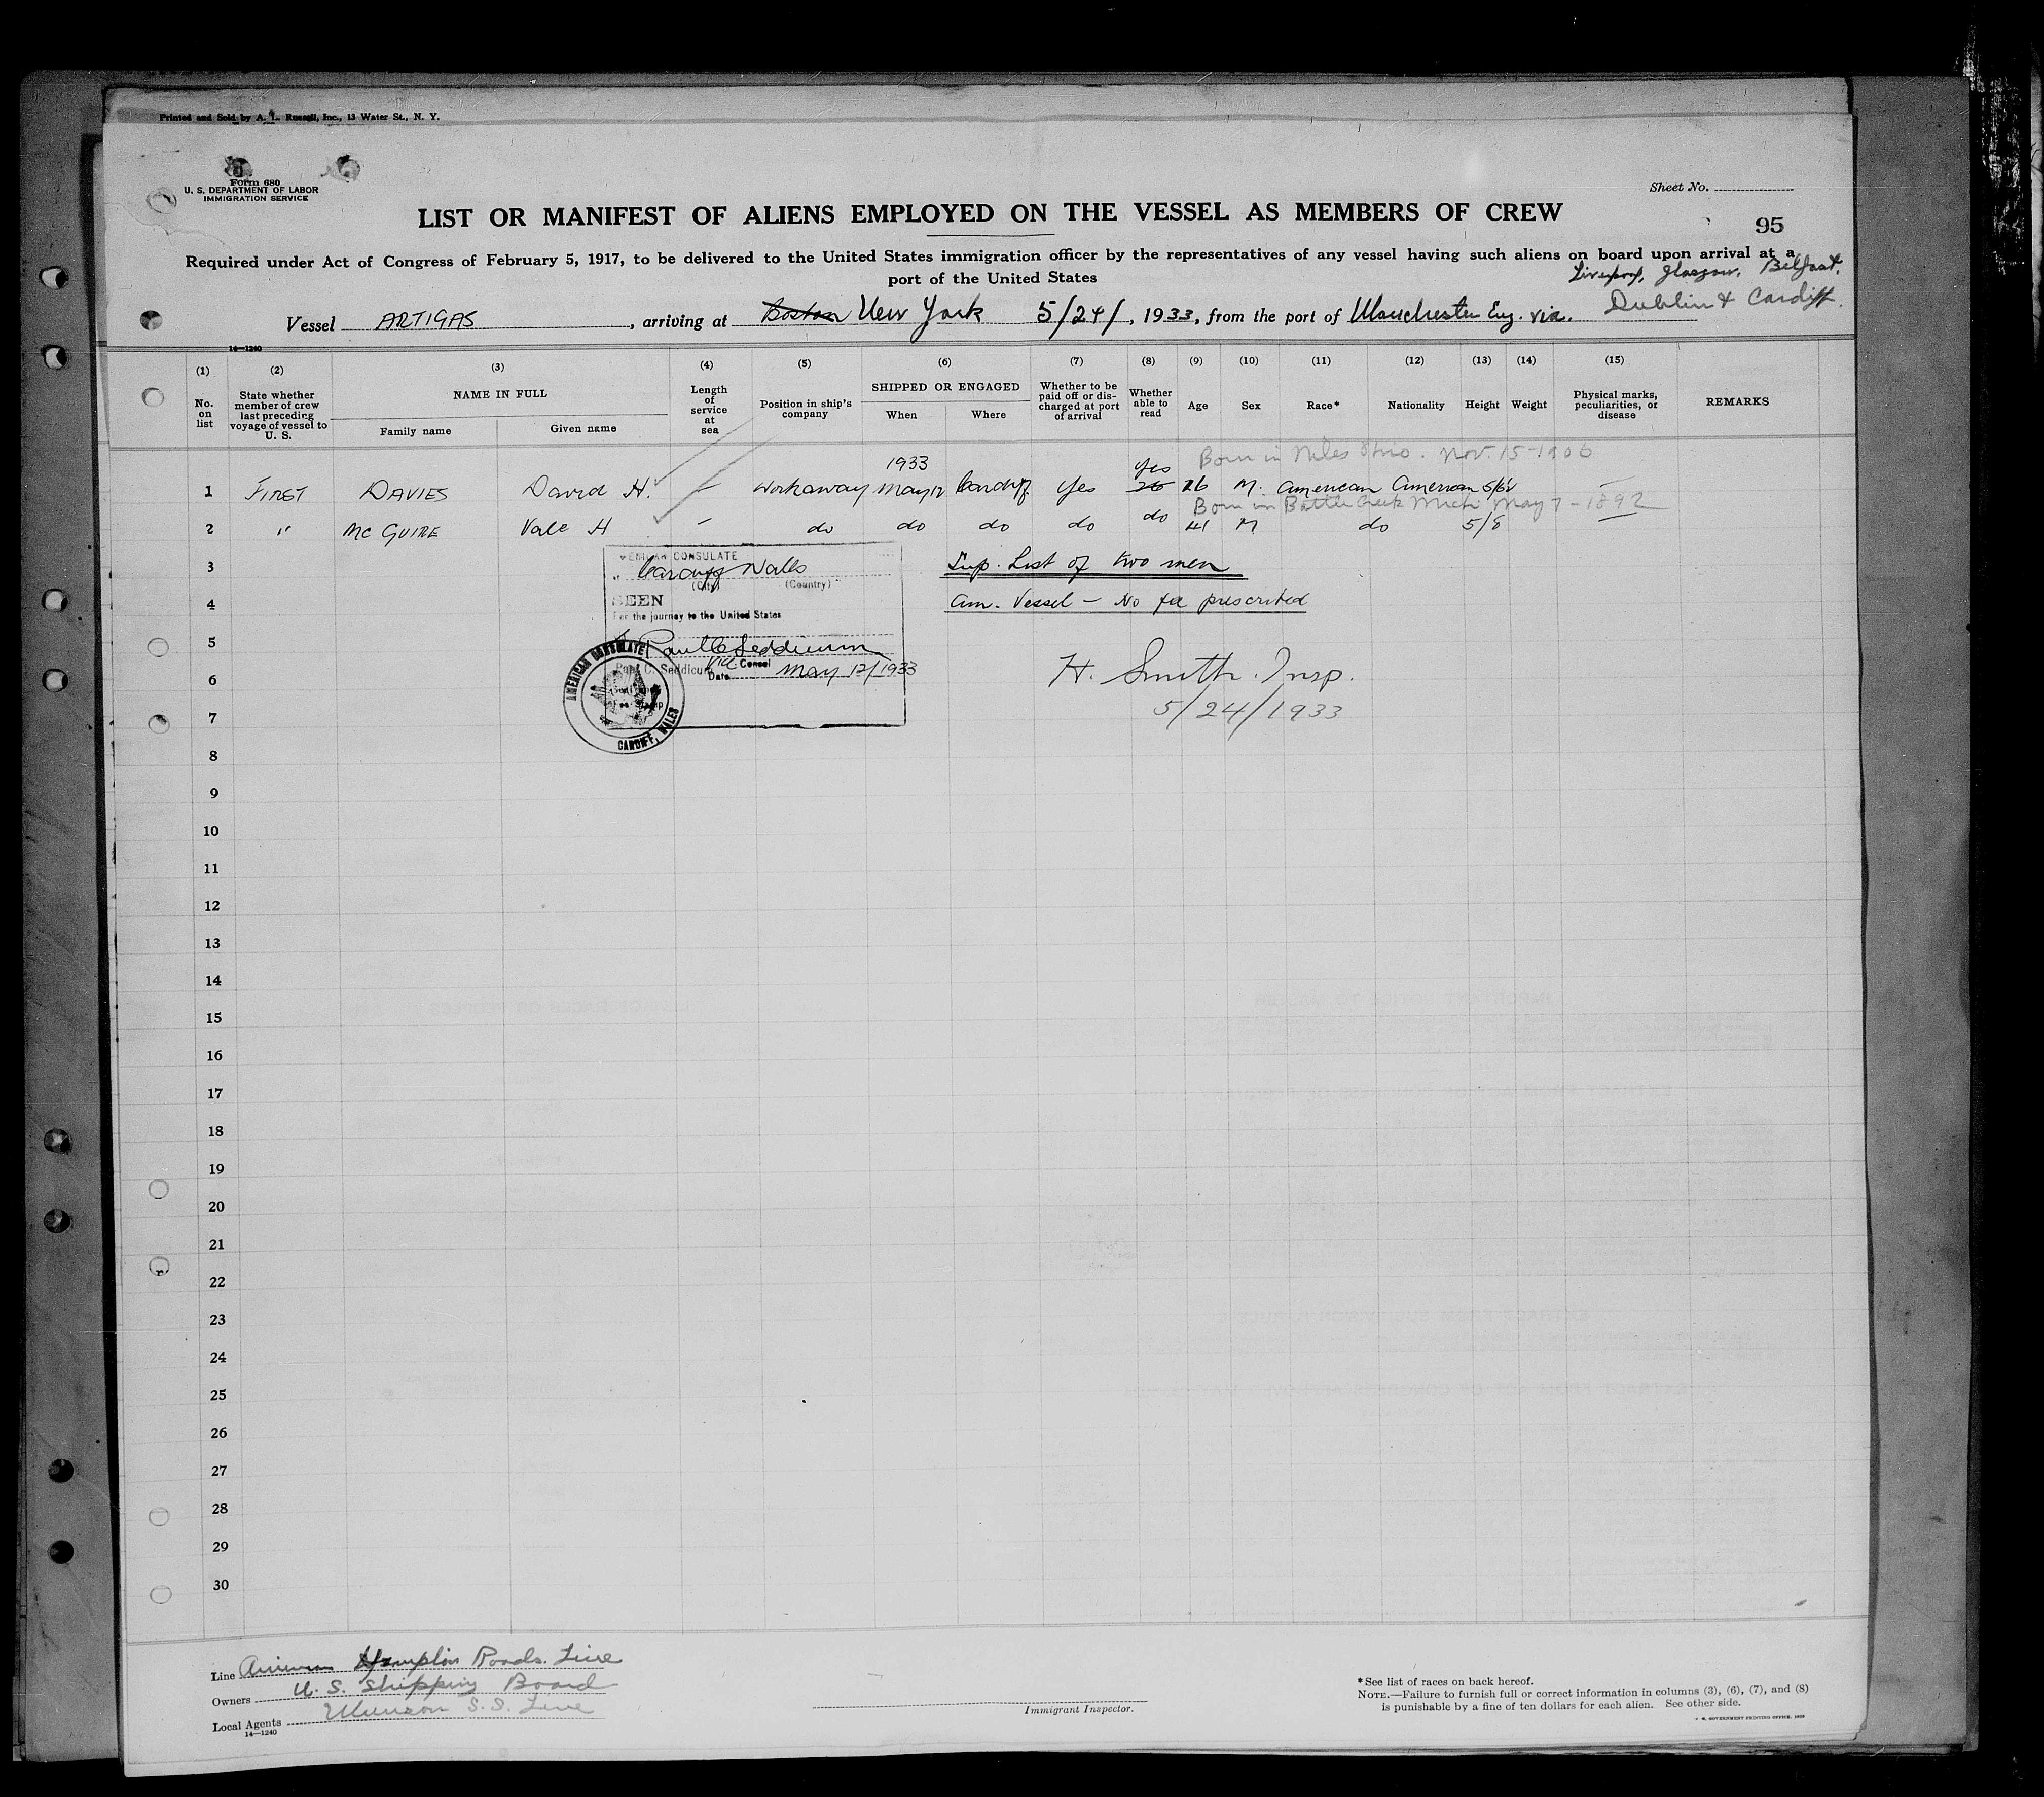 Printed and Sold by A. L. Russell, Inc., 13 Water St., N. Y.
Form 680
U. S. DEPARTMENT OF LABOR
IMMIGRATION SERVICE
Sheet No.
LIST OR MANIFEST OF ALIENS EMPLOYED ON THE VESSEL AS MEMBERS OF CREW
95
Required under Act of Congress of February 5, 1917, to be delivered to the United States immigration officer by the representatives of any vessel having such aliens on board upon arrival at a
port of the United States
Liverpool, Glasgow, Belfast,
Dublin & Cardiff.
Vessel ARTIGAS, arriving at Boston New York 5/24/, 1933, from the port of Manchester Eng. via.
14—1240
(1) (2) (3) (4) (5) (6) (7) (8) (9) (10) (11) (12) (13) (14) (15)
No. on list
State whether member of crew last preceding voyage of vessel to U. S.
NAME IN FULL
Family name
Given name
Length of service at sea
Position in ship's company
SHIPPED OR ENGAGED
When
Where
Whether to be paid off or discharged at port of arrival
Whether able to read
Age
Sex
Race*
Nationality
Height
Weight
Physical marks, peculiarities, or disease
REMARKS
1933 yes Born in Niles Ohio. Nov. 15-1906
1 FIRST DAVIES David H. — Workaway May 12 Cardiff yes 26 26 M. American American 5/6½ —
Born in Battle Creek Mich May 7-1892
2 " MC GUIRE Vale H — do do do do do 41 M do 5/8 —
3 Sup. List of two men
4 Am. Vessel — No fee prescribed
5
6 H. Smith. Insp.
7 5/24/1933
AMERICAN CONSULATE
Cardiff Wales
(City) (Country)
SEEN
For the journey to the United States
Paul C. Seddicum
Paul C. Seddicum
Vice Consul
Date May 12/1933
AMERICAN CONSULATE
CARDIFF, WALES
8
9
10
11
12
13
14
15
16
17
18
19
20
21
22
23
24
25
26
27
28
29
30
Line American Hampton Roads Line
Owners U. S. Shipping Board
Local Agents Munson S.S. Line
14—1240
Immigrant Inspector.
*See list of races on back hereof.
NOTE.—Failure to furnish full or correct information in columns (3), (6), (7), and (8)
is punishable by a fine of ten dollars for each alien. See other side.